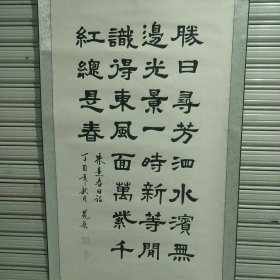 勝日尋芳泗水濱無
邊光景一時新等閒
識得東風面萬紫千
紅總是春
朱熹春日詩
丁酉年秋月